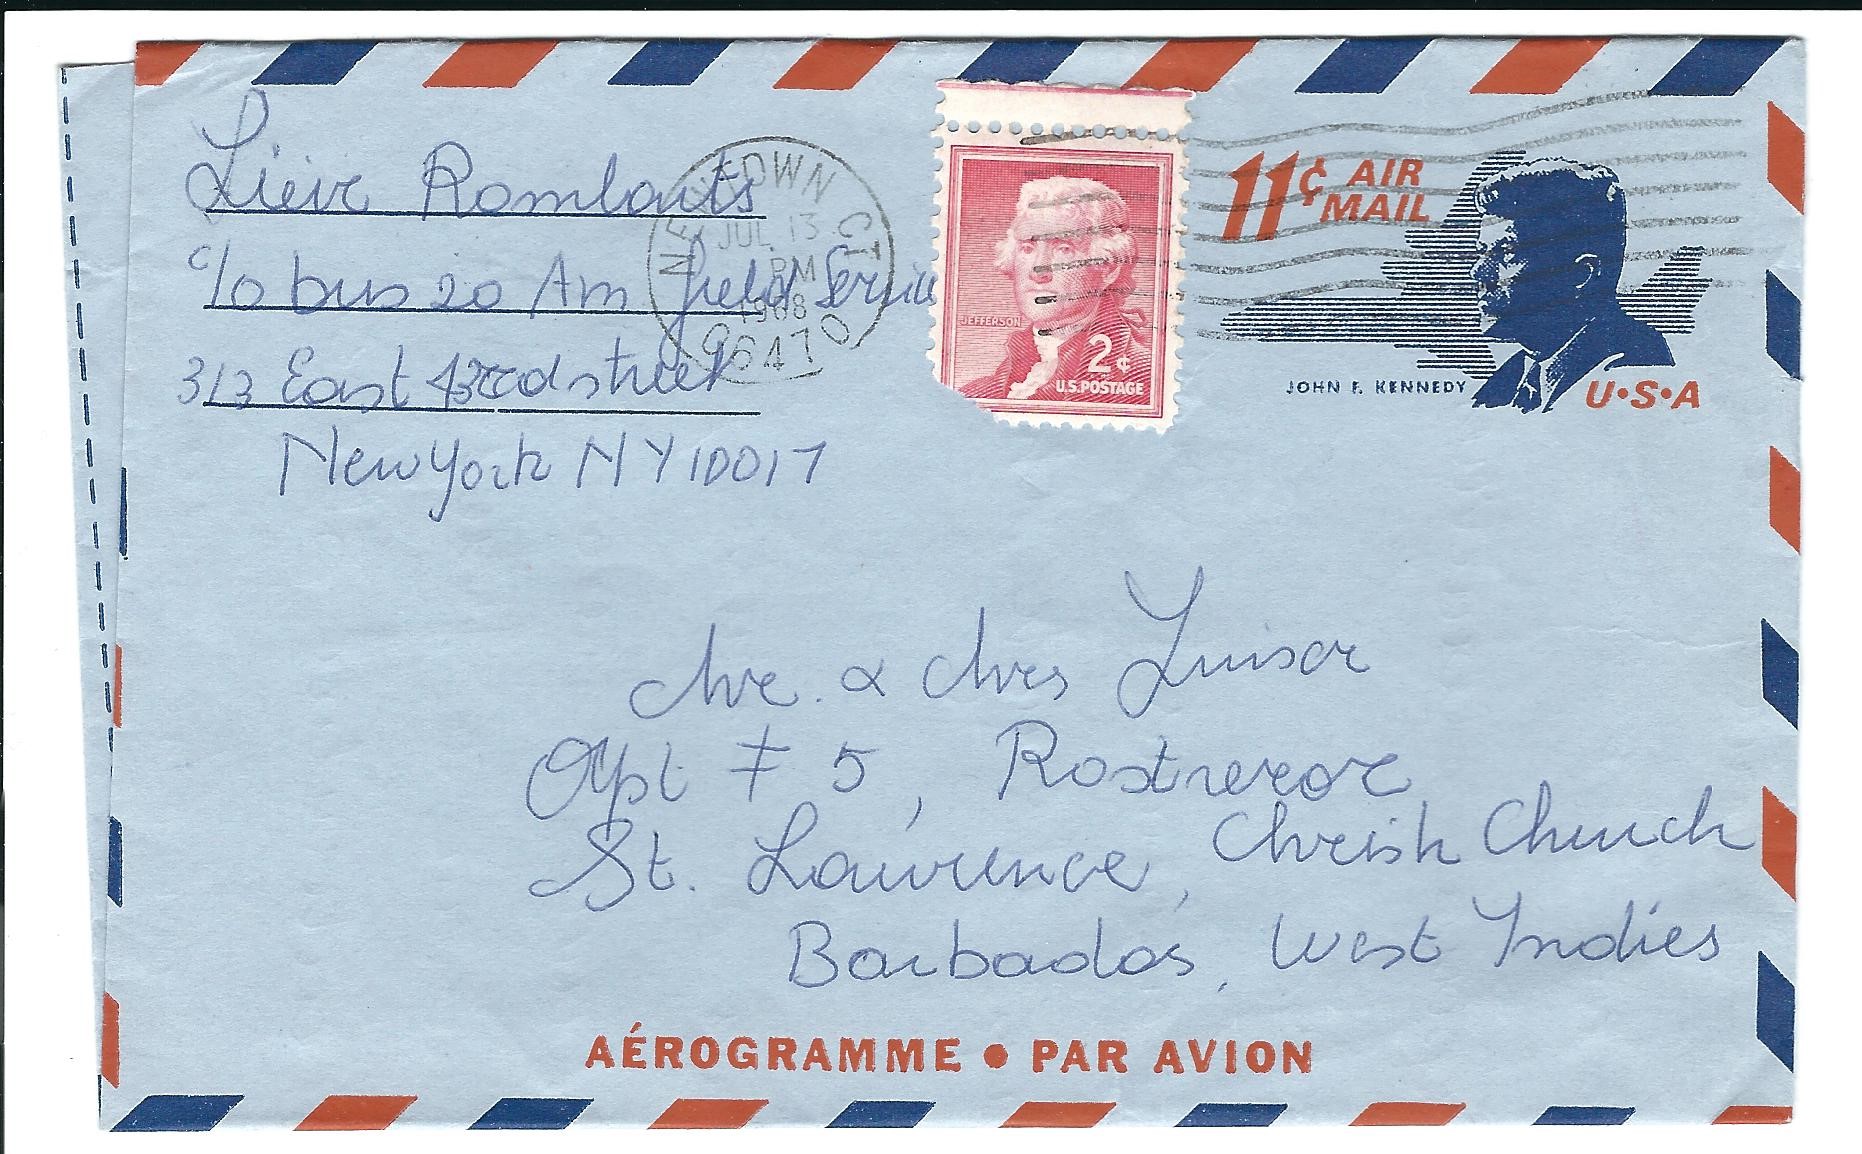 Lieve Rombauts
c/o bus 20 Am field Service
313 East 43rd street
New York NY 10017
NEWTOWN CT
JUL 13
PM
1968
06470
JEFFERSON
2¢
U.S. POSTAGE
11¢ AIR
MAIL
JOHN F. KENNEDY
U•S•A
& Mrs
Apt # 5, Rostrevor
St. Lawrence, Christ Church
Barbados, West Indies
AÉROGRAMME • PAR AVION